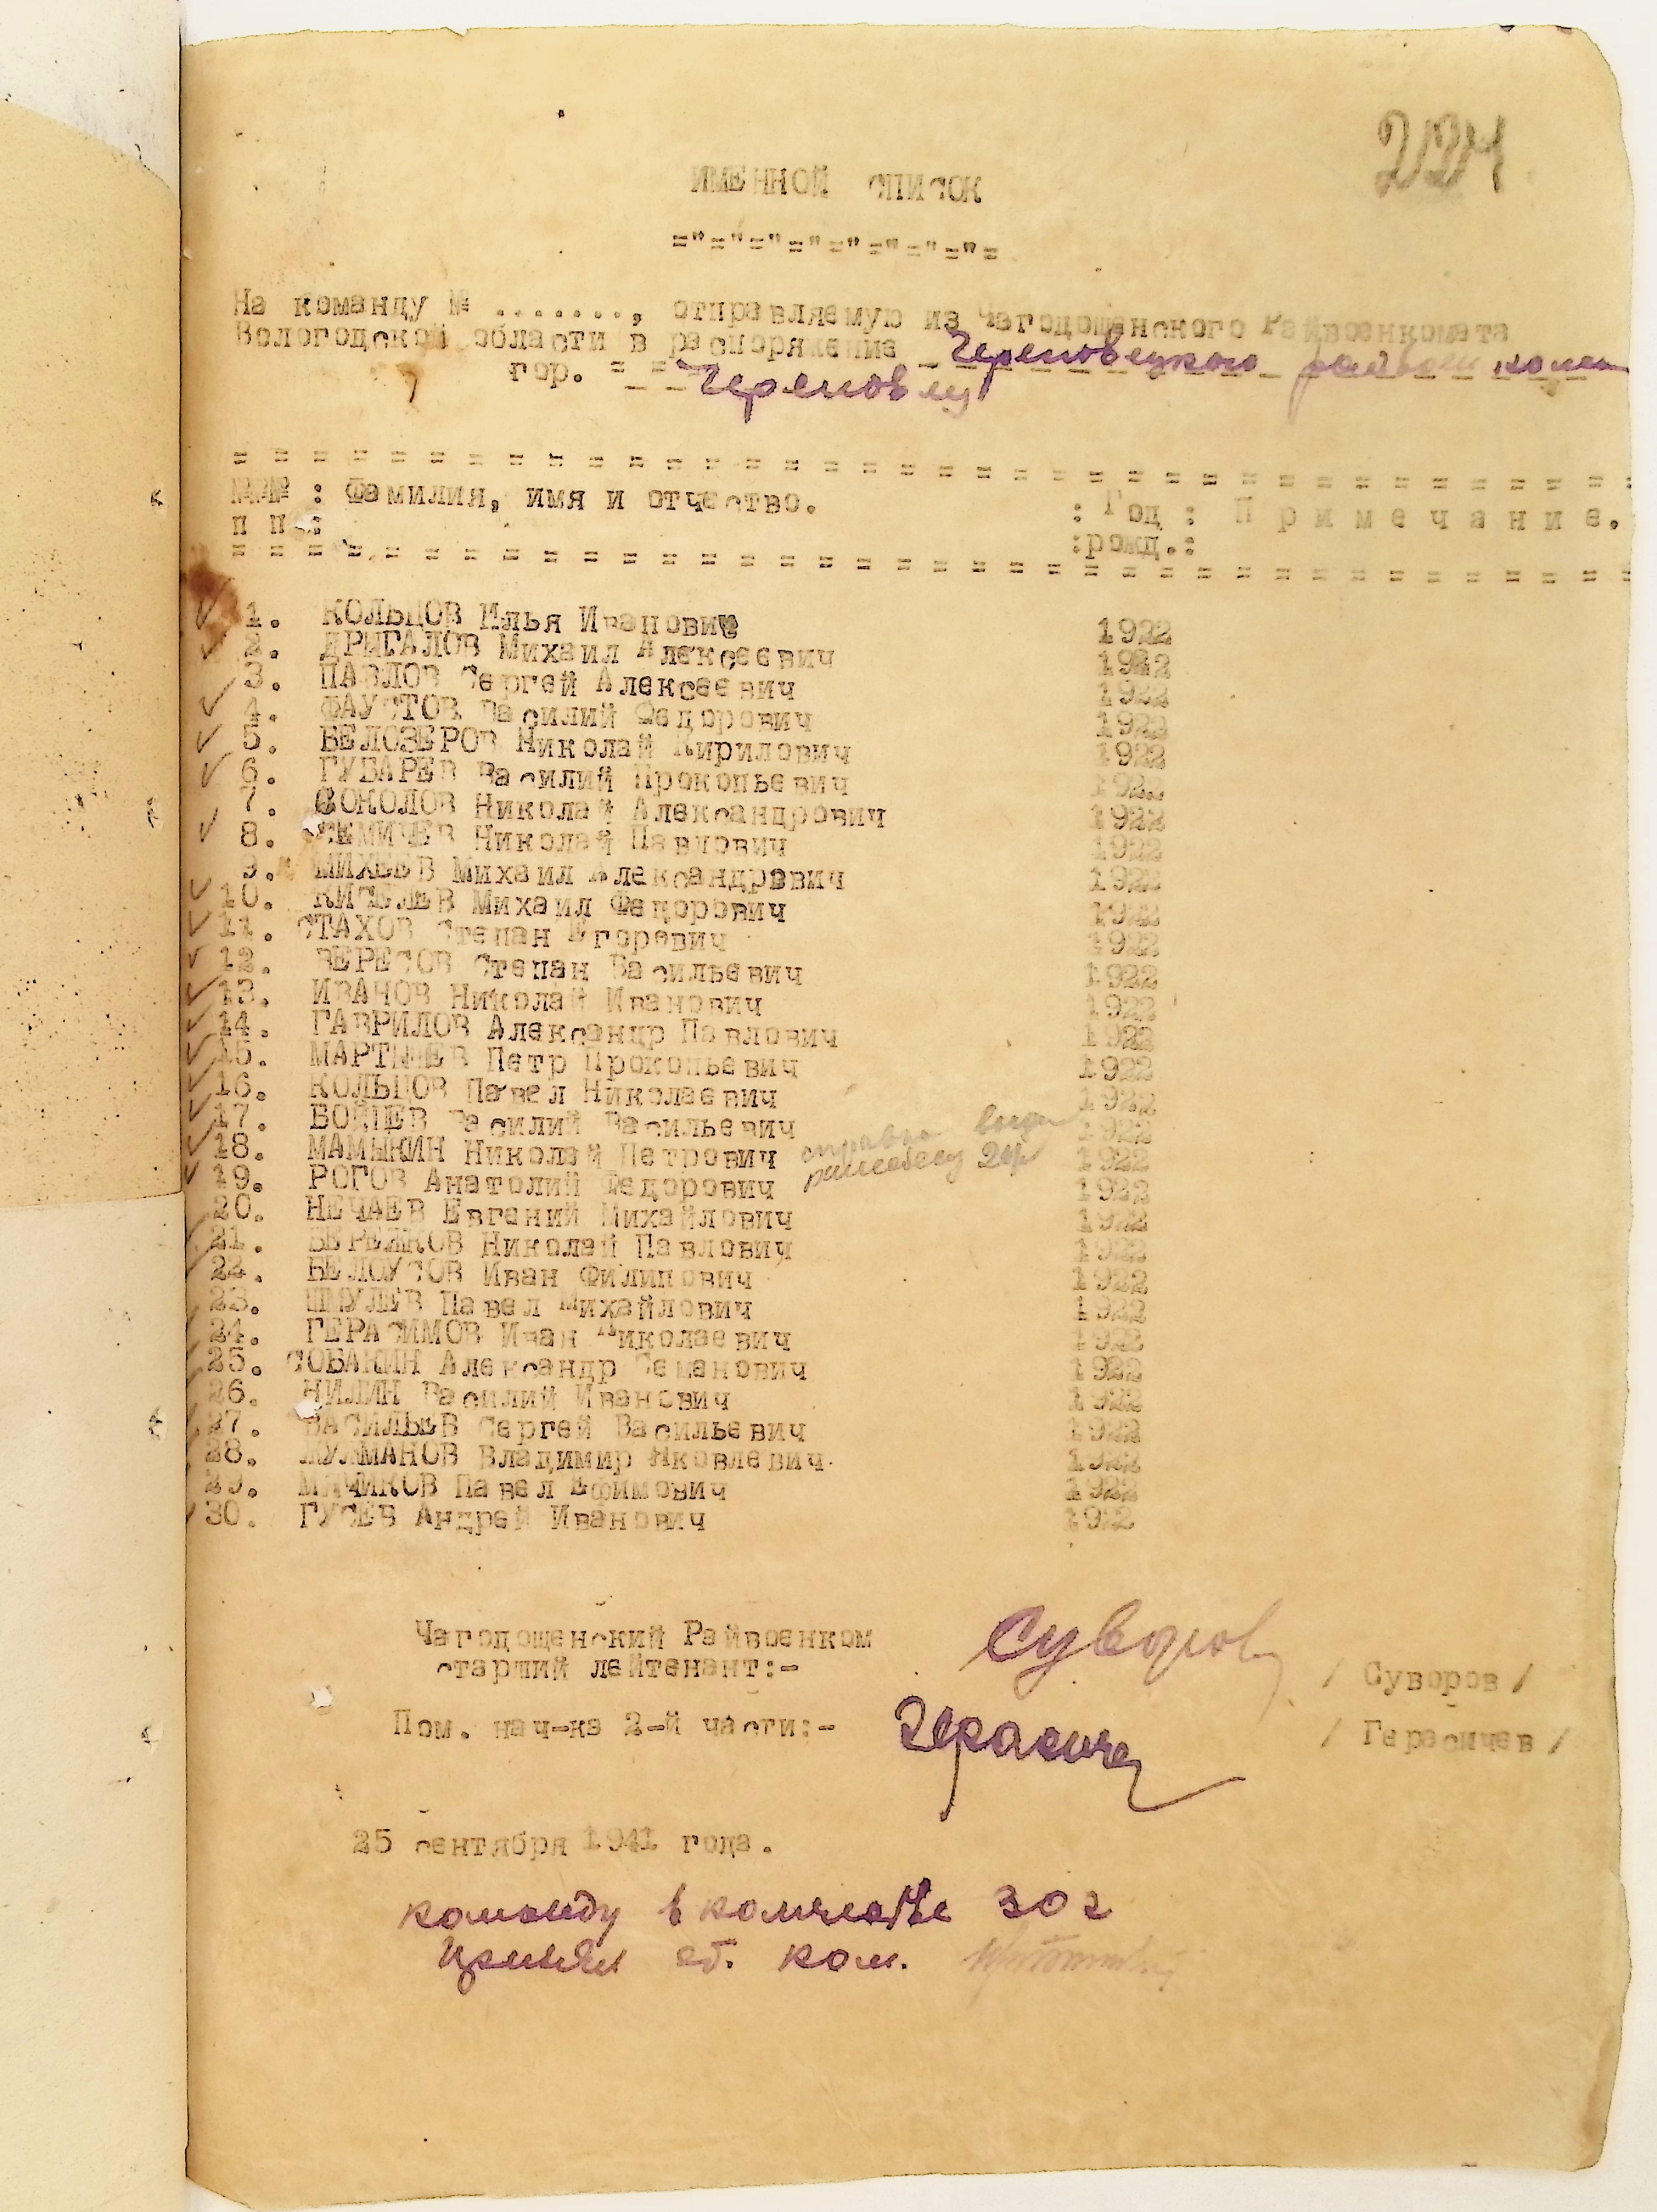 224
ИМЕННОЙ СПИСОК
="="="="="="="="=
На команду № ......., отправляемую из Чагодощенского Райвоенкомата
Вологодской области в распоряжение Череповецкого райвоенкомат
гор. Череповец
№№ : Фамилия, имя и отчество. : Год : Примечание.
п п : :рожд.:
1. КОЛЬЦОВ Илья Иванович 1922
2. ДРЫГАЛОВ Михаил Алексеевич 1922
3. ПАВЛОВ Сергей Алексеевич 1922
4. ФАУСТОВ Василий Федорович 1922
5. БЕЛОЗЕРОВ Николай Кирилович 1922
6. ГУБАРЕВ Василий Прокопьевич 1922
7. СОКОЛОВ Николай Александрович 1922
8. СЕМИЧЕВ Николай Павлович 1922
9. МИХЕЕВ Михаил Александрович 1922
10. КИСЕЛЕВ Михаил Федорович 1922
11. СТАХОВ Степан Егоревич 1922
12. ВЕРЕСОВ Степан Васильевич 1922
13. ИВАНОВ Николай Иванович 1922
14. ГАВРИЛОВ Александр Павлович 1922
15. МАРТЫШЕВ Петр Прокопьевич 1922
16. КОЛЬЦОВ Павел Николаевич 1922
17. ВОЙЦЕВ Василий Васильевич 1922
18. МАМЫКИН Николай Петрович 1922
19. РОГОВ Анатолий Федорович 1922
20. НЕЧАЕВ Евгений Михайлович 1922
21. БЕРЕЖКОВ Николай Павлович 1922
22. БЕЛОУСОВ Иван Филипович 1922
23. ШМУЛЕВ Павел Михайлович 1922
24. ГЕРАСИМОВ Иван Николаевич 1922
25. СОБАКИН Александр Семанович 1922
26. НИЛИН Василий Иванович 1922
27. ВАСИЛЬЕВ Сергей Васильевич 1922
28. ЖУКМАНОВ Владимир Яковлевич. 1922
29. МЯЧИКОВ Павел Ефимович 1922
30. ГУСЕВ Андрей Иванович 1922
Чагодощенский Райвоенком
старший лейтенант:- Суворов / Суворов /
Пом. нач-ка 2-й части:- Герасиче / Герасичев /
25 сентября 1941 года.
команду в количестве 30 ч
принял от. ком.